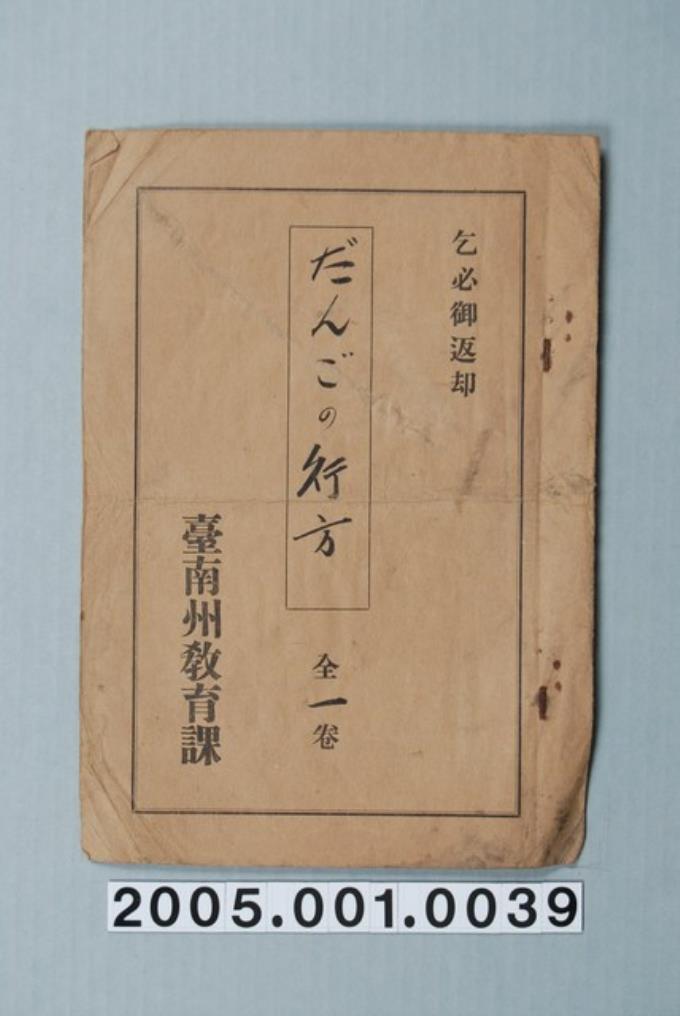 乞必御返却
だんごの行方
全一卷
臺南州教育課
2005.001.0039